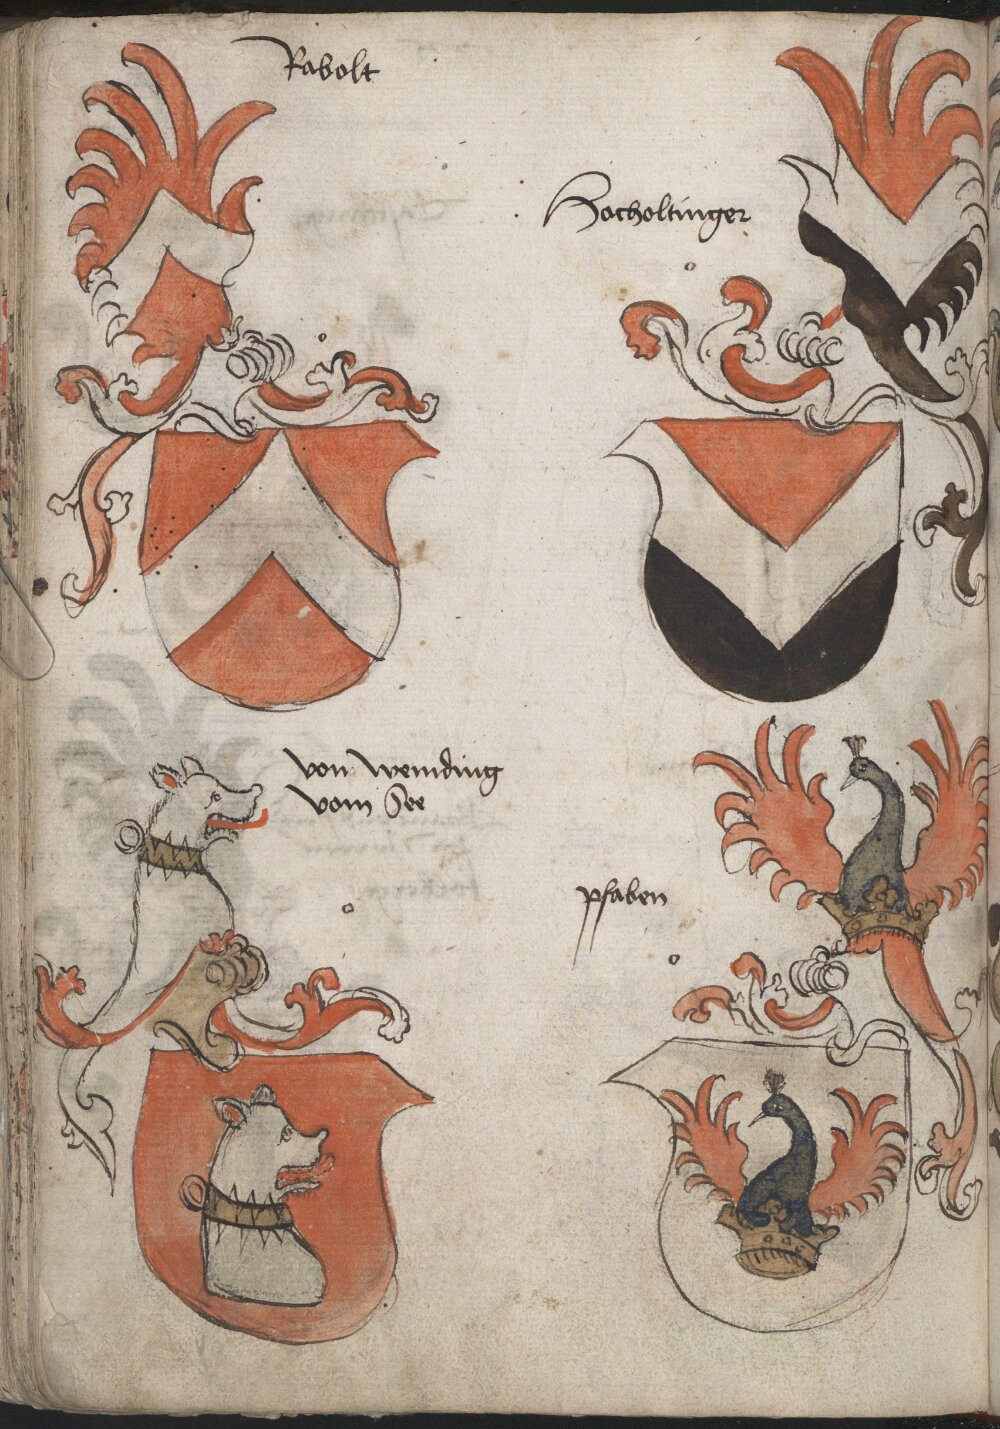 Rabolt
Hocholtinger
von wemding
vom See
pfaben